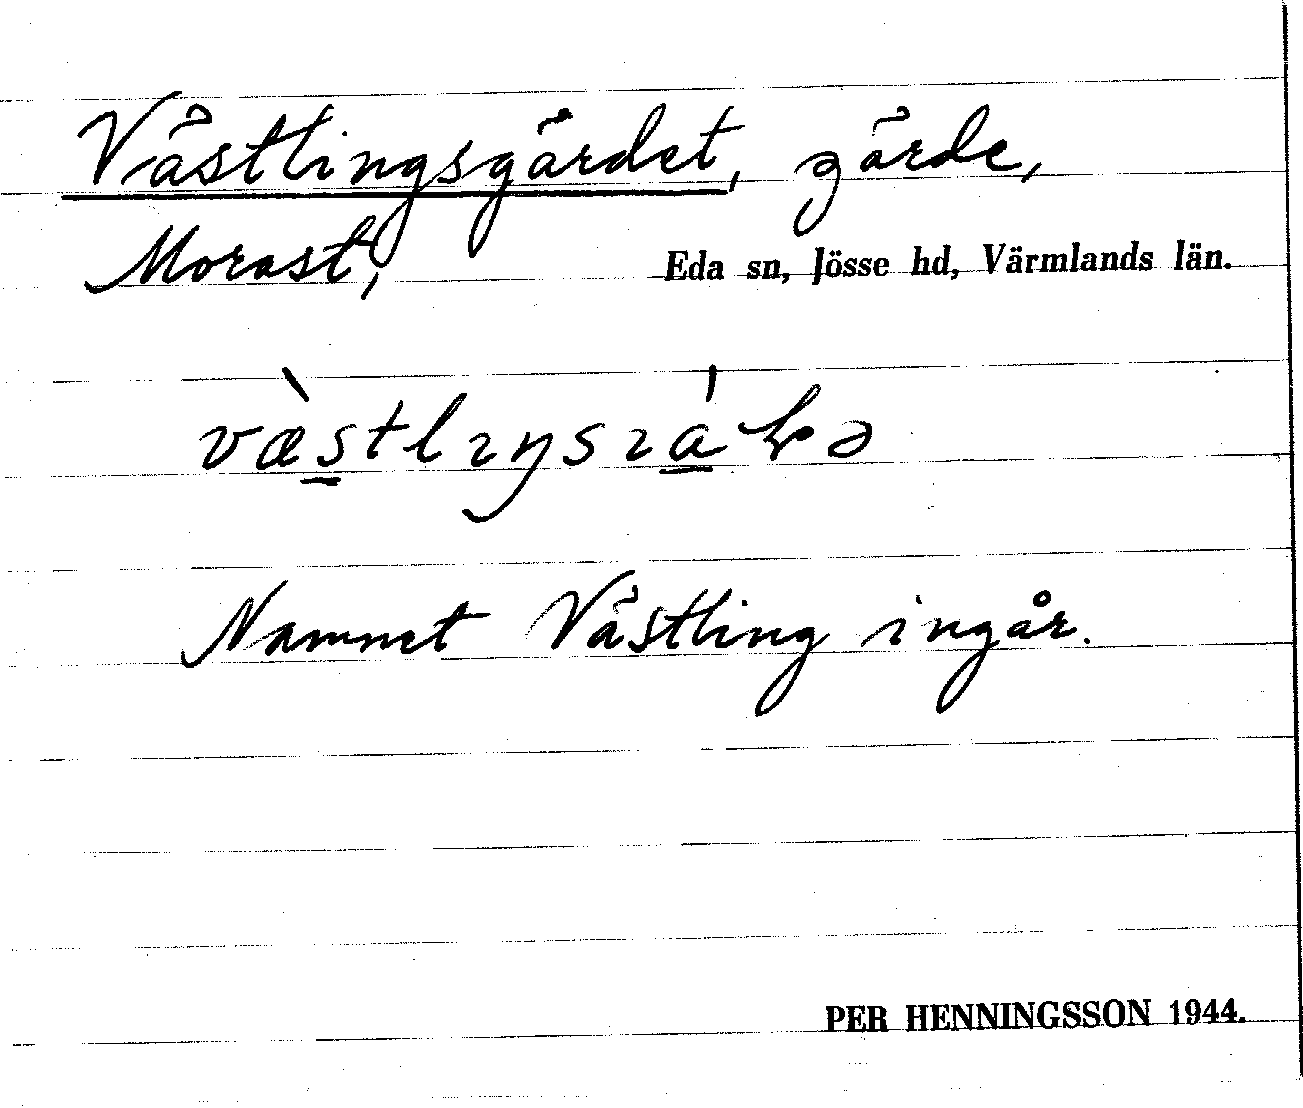 Västlingsgärdet, gärde,
Morast,
Eda sn, Jösse hd, Värmlands län.
Namnet Västling ingår.
PER HENNINGSSON 1944.